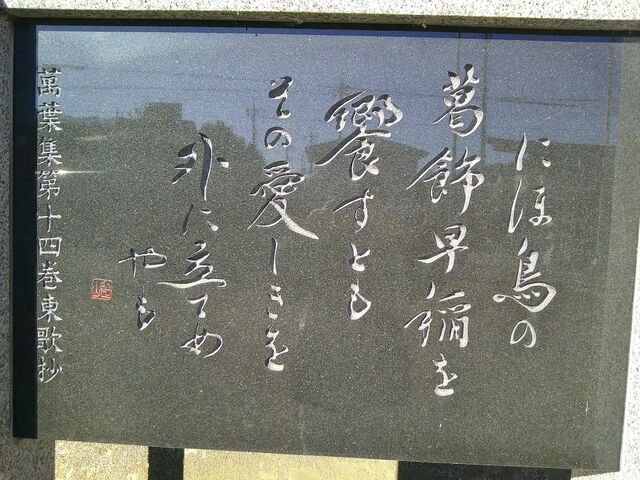 にほ鳥の
葛飾早稲を
饗すとも
その愛しきを
外に立てめ
やも
萬葉集第十四巻東歌抄